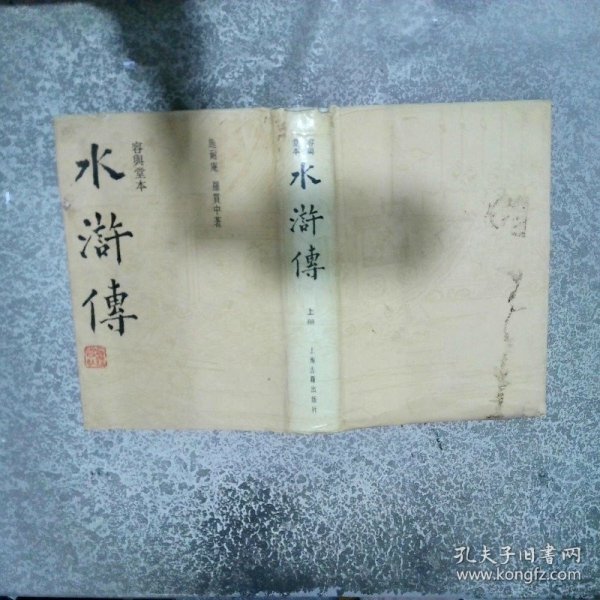 容與堂本
水滸傳
施耐庵 羅貫中著
容與堂本
水滸傳
上册
上海古籍出版社
孔夫子旧书网
www.kongfz.com